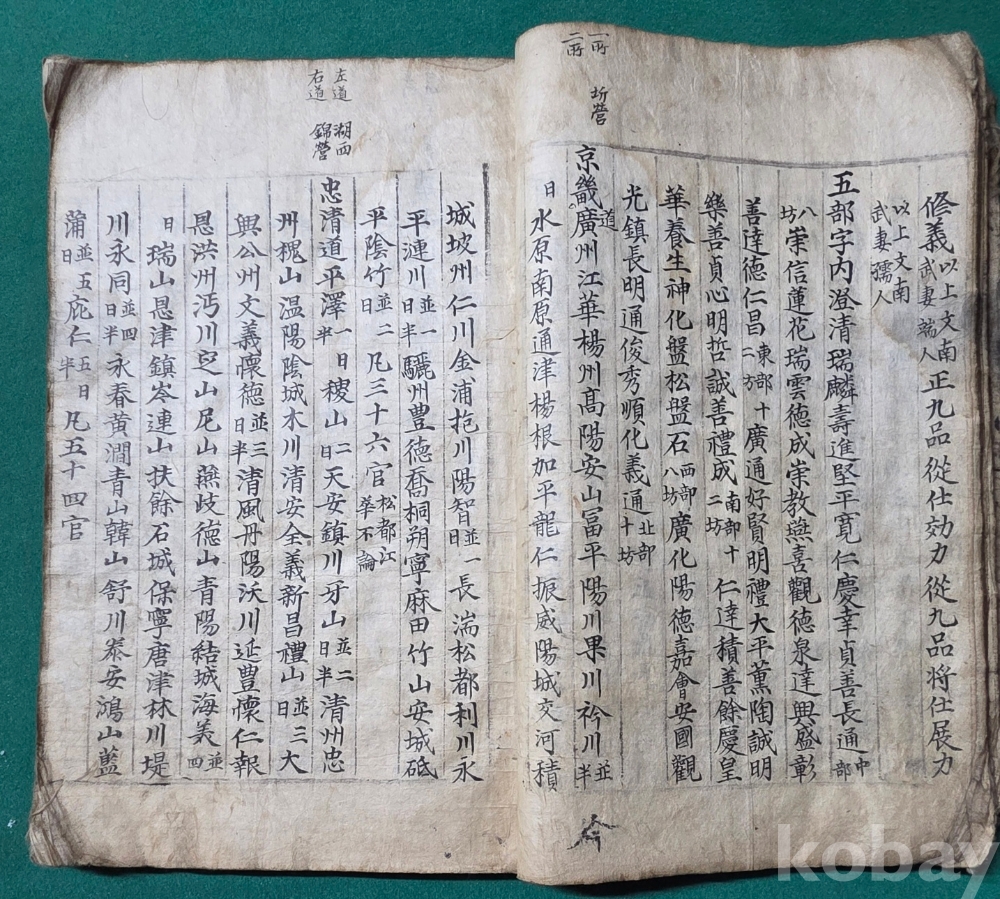 一所
二所
圻營
修義以上文南武妻端人正九品從仕効力從九品將仕展力
以上文南武妻孺人
五部字內澄清瑞麟壽進堅平寬仁慶幸貞善長通中部
八坊崇信蓮花瑞雲德成崇教燕喜觀德泉達興盛彰
善達德仁昌東部十二方廣通好賢明禮大平薰陶誠明
樂善貞心明哲誠善禮成南部十二坊仁達積善餘慶皇
華養生神化盤松盤石西部八坊廣化陽德嘉會安國觀
光鎮長明通俊秀順化義通北部十坊
京畿道廣州江華楊州高陽安山富平陽川果川衿川並半
日水原南原通津楊根加平龍仁振威陽城交河積
左道
右道
湖西
錦營
城坡州仁川金浦抱川陽智並一日長湍松都利川永
平漣川並一日半驪州豊德喬桐朔寧麻田竹山安城砥
平陰竹並二日凡三十六官松都江華不論
忠清道平澤一日半稷山二日天安鎮川牙山並二日半清州忠
州槐山温陽陰城木川清安全義新昌禮山並三日大
興公州文義懷德並三日半清風丹陽沃川延豊懷仁報
恩洪州沔川定山尼山燕岐德山青陽結城海美並四
日瑞山恩津鎮岑連山扶餘石城保寧唐津林川堤
川永同並四日半永春黃澗青山韓山舒川泰安鴻山藍
蒲並五日庇仁五日半凡五十四官
kobay